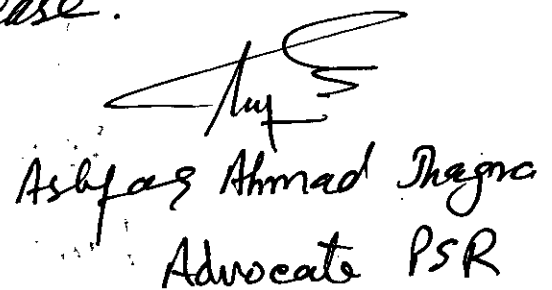 ease.
Ashfaq Ahmad Jhagra
Advocate PSR